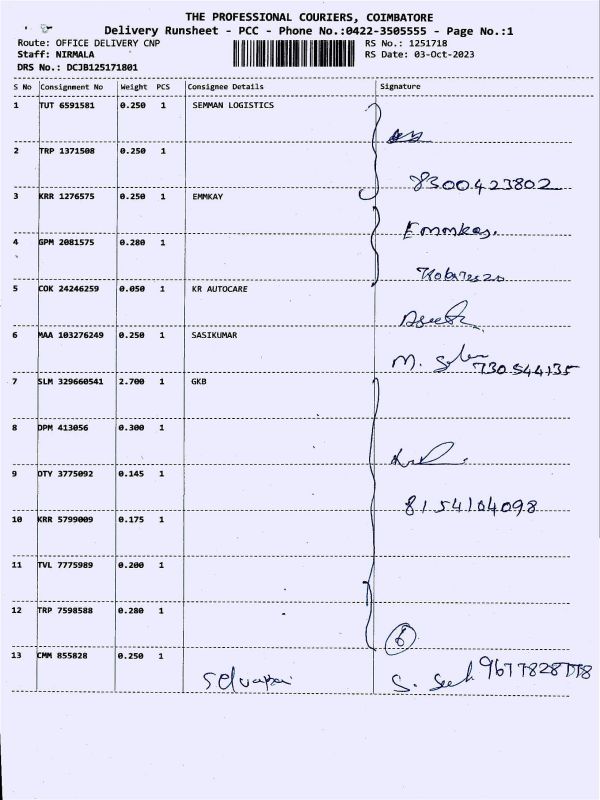 THE PROFESSIONAL COURIERS, COIMBATORE
Delivery Runsheet - PCC - Phone No.:0422-3505555 - Page No.:1
Route: OFFICE DELIVERY CNP RS No.: 1251718
Staff: NIRMALA RS Date: 03-Oct-2023
DRS No.: DCJB125171801
S No Consignment No Weight PCS Consignee Details Signature
1 TUT 6591581 0.250 1 SEMMAN LOGISTICS
2 TRP 1371508 0.250 1
8300423802
3 KRR 1276575 0.250 1 EMMKAY
Emmkay.
4 GPM 2081575 0.280 1
5 COK 24246259 0.050 1 KR AUTOCARE
6 MAA 103276249 0.250 1 SASIKUMAR
M. 730544135
7 SLM 329660541 2.700 1 GKB
8 DPM 413056 0.300 1
9 OTY 3775092 0.145 1
8154104098
10 KRR 5799009 0.175 1
11 TVL 7775989 0.200 1
12 TRP 7598588 0.280 1
6
13 CMM 855828 0.250 1
S.